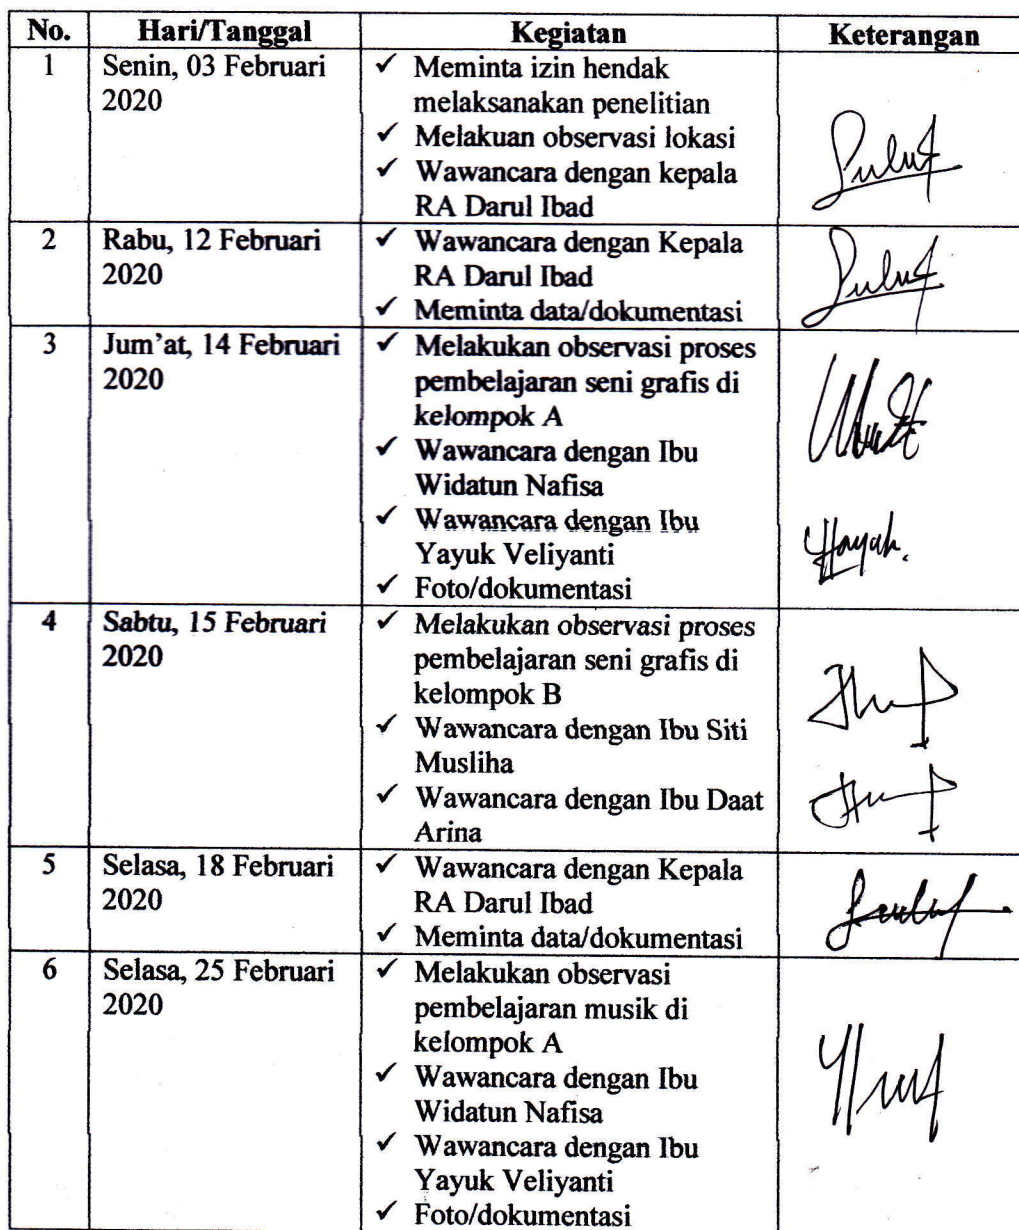 No. Hari/Tanggal Kegiatan Keterangan
1 Senin, 03 Februari ✓ Meminta izin hendak
2020 melaksanakan penelitian
✓ Melakuan observasi lokasi
✓ Wawancara dengan kepala
RA Darul Ibad
2 Rabu, 12 Februari ✓ Wawancara dengan Kepala
2020 RA Darul Ibad
✓ Meminta data/dokumentasi
3 Jum'at, 14 Februari ✓ Melakukan observasi proses
2020 pembelajaran seni grafis di
kelompok A
✓ Wawancara dengan Ibu
Widatun Nafisa
✓ Wawancara dengan Ibu
Yayuk Veliyanti
✓ Foto/dokumentasi
4 Sabtu, 15 Februari ✓ Melakukan observasi proses
2020 pembelajaran seni grafis di
kelompok B
✓ Wawancara dengan Ibu Siti
Musliha
✓ Wawancara dengan Ibu Daat
Arina
5 Selasa, 18 Februari ✓ Wawancara dengan Kepala
2020 RA Darul Ibad
✓ Meminta data/dokumentasi
6 Selasa, 25 Februari ✓ Melakukan observasi
2020 pembelajaran musik di
kelompok A
✓ Wawancara dengan Ibu
Widatun Nafisa
✓ Wawancara dengan Ibu
Yayuk Veliyanti
✓ Foto/dokumentasi